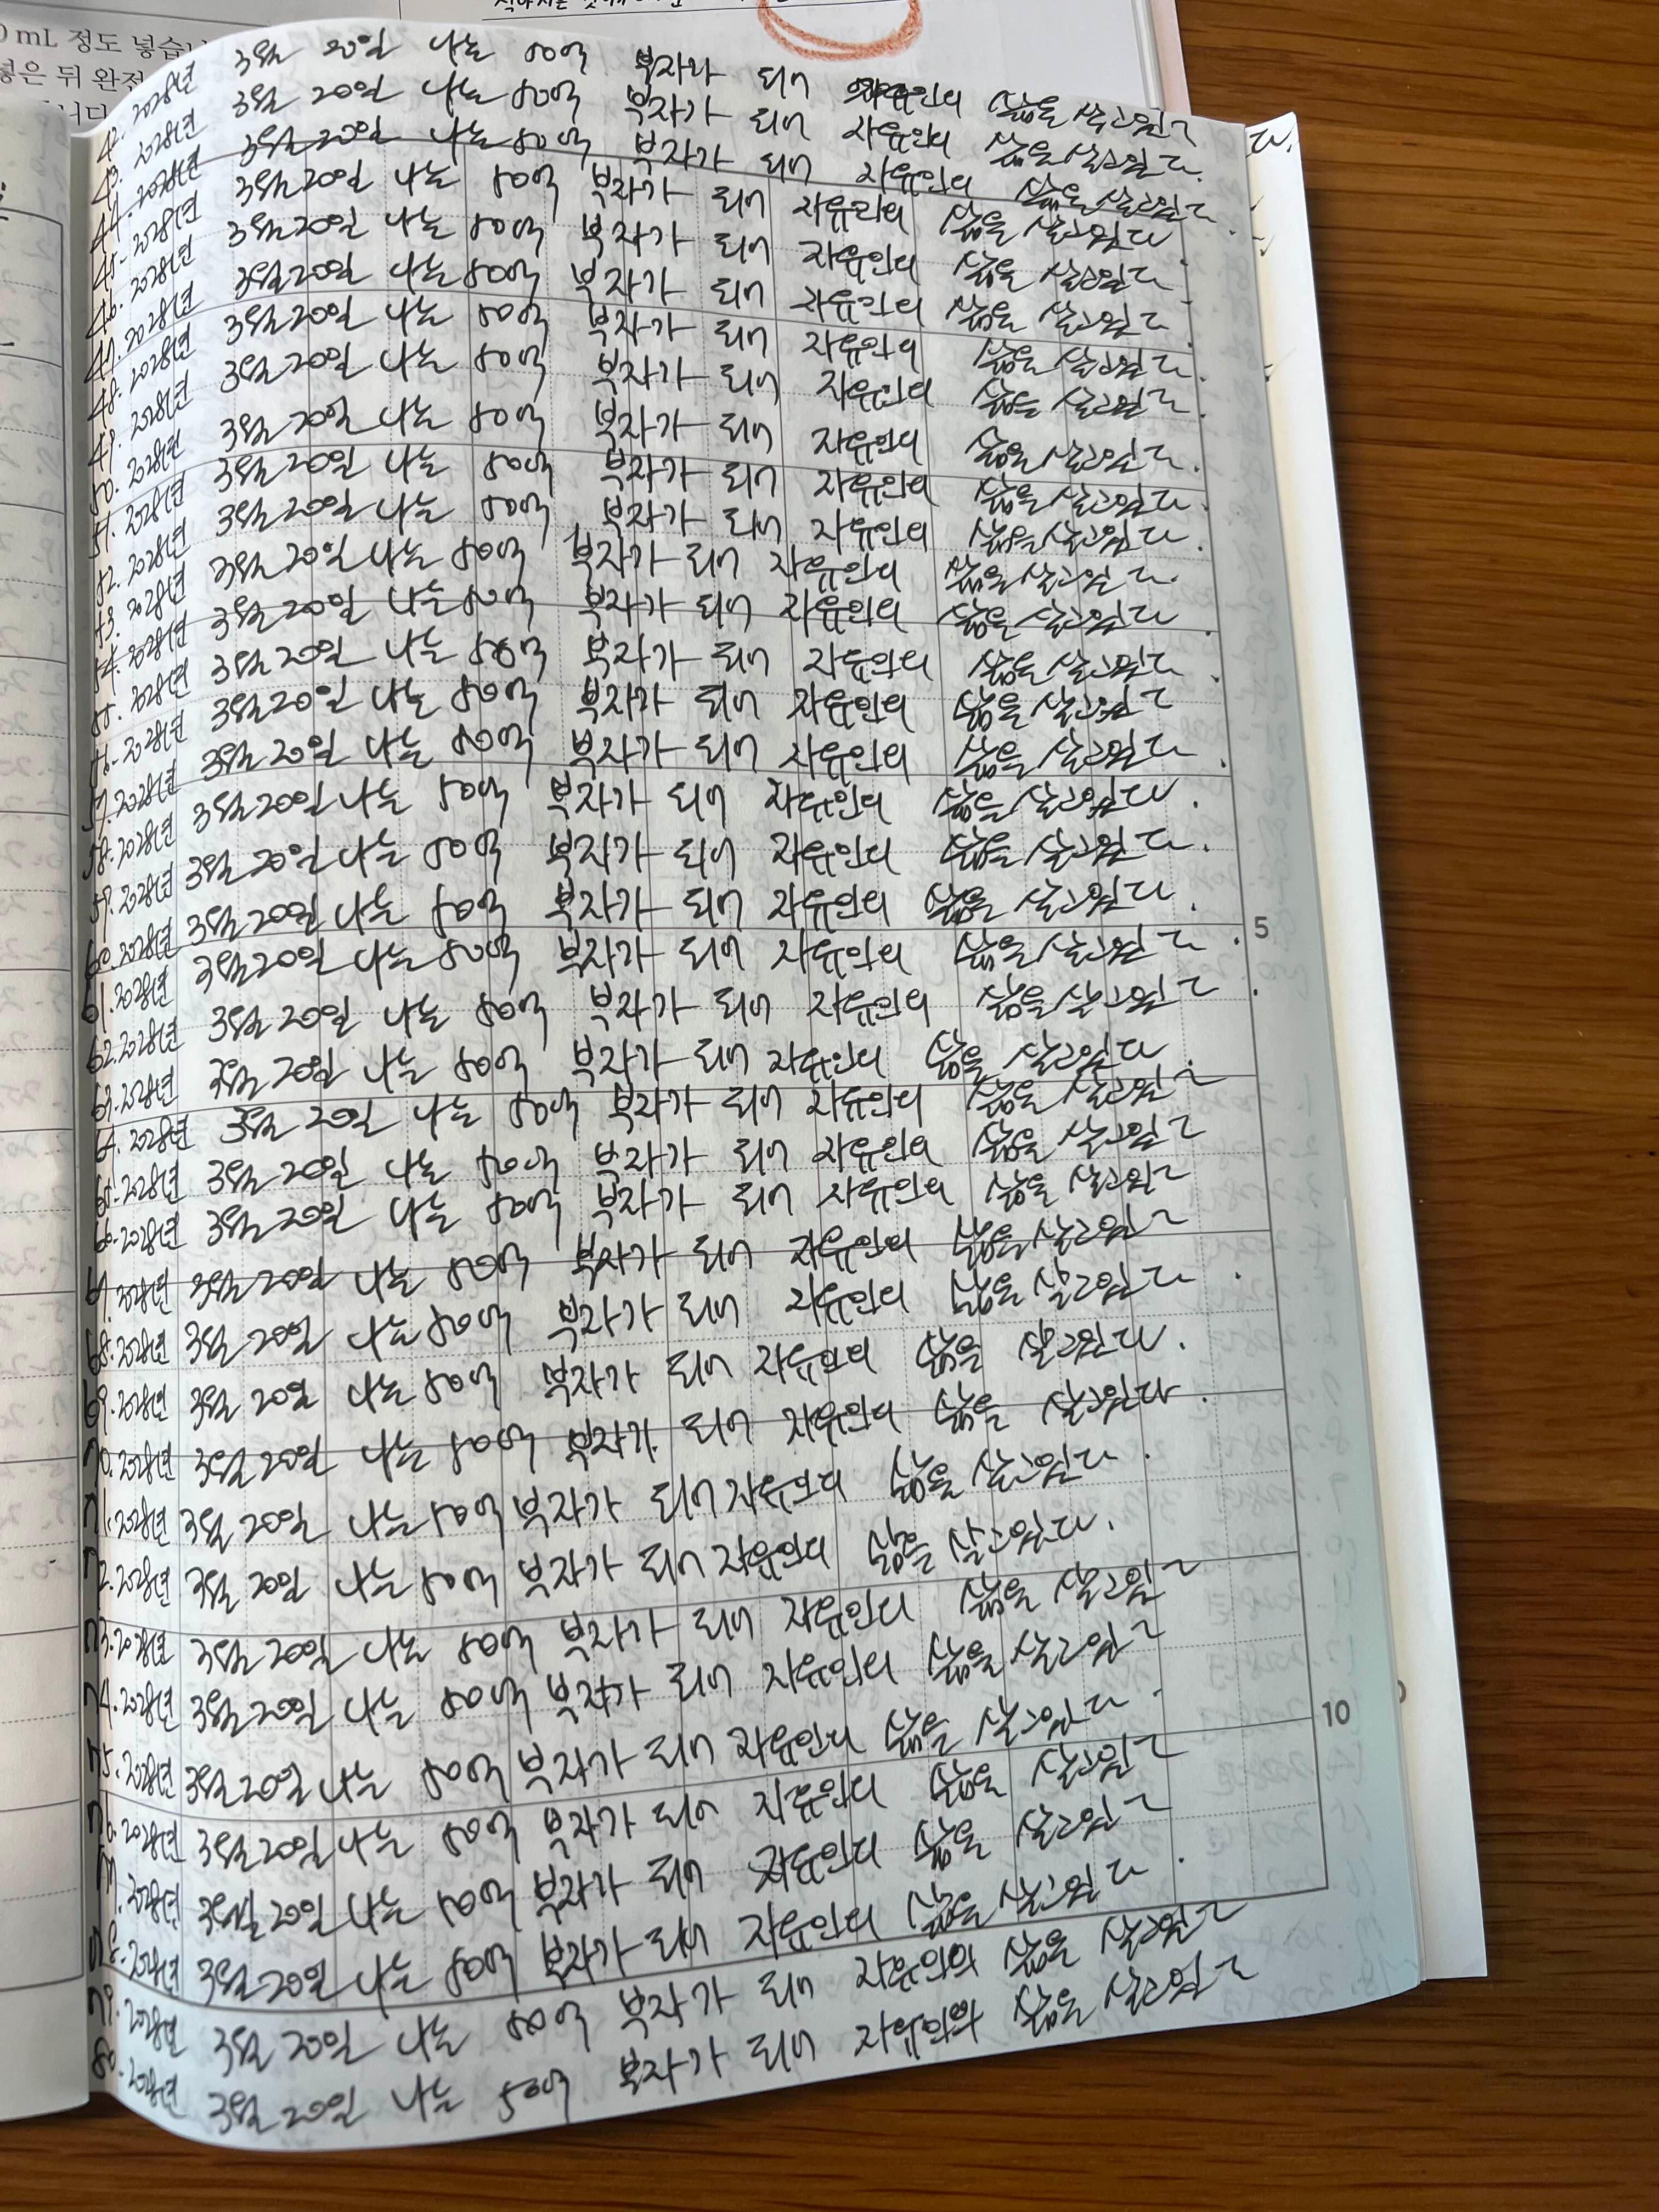 0 mL 정도 넣습니
넣은 뒤 완전
니다
42. 2028년 3월 20일 나는 50억 부자가 되어 자유인의 삶을 살고있다
43. 2028년 3월 20일 나는 50억 부자가 되어 자유인의 삶을 살고있다.
44. 2028년 3월 20일 나는 50억 부자가 되어 자유인의 삶을 살고있다
45. 2028년 3월 20일 나는 50억 부자가 되어 자유인의 삶을 살고있다.
46. 2028년 3월 20일 나는 50억 부자가 되어 자유인의 삶을 살고있다.
47. 2028년 3월 20일 나는 50억 부자가 되어 자유인의 삶을 살고있다.
48. 2028년 3월 20일 나는 50억 부자가 되어 자유인의 삶을 살고있다.
49. 2028년 3월 20일 나는 50억 부자가 되어 자유인의 삶을 살고있다.
50. 2028년 3월 20일 나는 50억 부자가 되어 자유인의 삶을 살고있다.
51. 2028년 3월 20일 나는 50억 부자가 되어 자유인의 삶을 살고있다.
52. 2028년 3월 20일 나는 50억 부자가 되어 자유인의 삶을 살고있다.
53. 2028년 3월 20일 나는 50억 부자가 되어 자유인의 삶을 살고있다.
54. 2028년 3월 20일 나는 50억 부자가 되어 자유인의 삶을 살고있다.
55. 2028년 3월 20일 나는 50억 부자가 되어 자유인의 삶을 살고있다.
56. 2028년 3월 20일 나는 50억 부자가 되어 자유인의 삶을 살고있다.
57. 2028년 3월 20일 나는 50억 부자가 되어 자유인의 삶을 살고있다.
58. 2028년 3월 20일 나는 50억 부자가 되어 자유인의 삶을 살고있다.
59. 2028년 3월 20일 나는 50억 부자가 되어 자유인의 삶을 살고있다.
60. 2028년 3월 20일 나는 50억 부자가 되어 자유인의 삶을 살고있다.
61. 2028년 3월 20일 나는 50억 부자가 되어 자유인의 삶을 살고있다.
5
62. 2028년 3월 20일 나는 50억 부자가 되어 자유인의 삶을 살고있다.
63. 2028년 3월 20일 나는 50억 부자가 되어 자유인의 삶을 살고있다.
64. 2028년 3월 20일 나는 50억 부자가 되어 자유인의 삶을 살고있다
65. 2028년 3월 20일 나는 50억 부자가 되어 자유인의 삶을 살고있다
66. 2028년 3월 20일 나는 50억 부자가 되어 자유인의 삶을 살고있다
67. 2028년 3월 20일 나는 50억 부자가 되어 자유인의 삶을 살고있다
68. 2028년 3월 20일 나는 50억 부자가 되어 자유인의 삶을 살고있다.
69. 2028년 3월 20일 나는 50억 부자가 되어 자유인의 삶을 살고있다.
70. 2028년 3월 20일 나는 50억 부자가 되어 자유인의 삶을 살고있다.
71. 2028년 3월 20일 나는 50억 부자가 되어 자유인의 삶을 살고있다.
72. 2028년 3월 20일 나는 50억 부자가 되어 자유인의 삶을 살고있다.
73. 2028년 3월 20일 나는 50억 부자가 되어 자유인의 삶을 살고있다
74. 2028년 3월 20일 나는 50억 부자가 되어 자유인의 삶을 살고있다
75. 2028년 3월 20일 나는 50억 부자가 되어 자유인의 삶을 살고있다.
10
76. 2028년 3월 20일 나는 50억 부자가 되어 자유인의 삶을 살고있다
77. 2028년 3월 20일 나는 50억 부자가 되어 자유인의 삶을 살고있다
78. 2028년 3월 20일 나는 50억 부자가 되어 자유인의 삶을 살고있다.
79. 2028년 3월 20일 나는 50억 부자가 되어 자유인의 삶을 살고있다
80. 2028년 3월 20일 나는 50억 부자가 되어 자유인의 삶을 살고있다